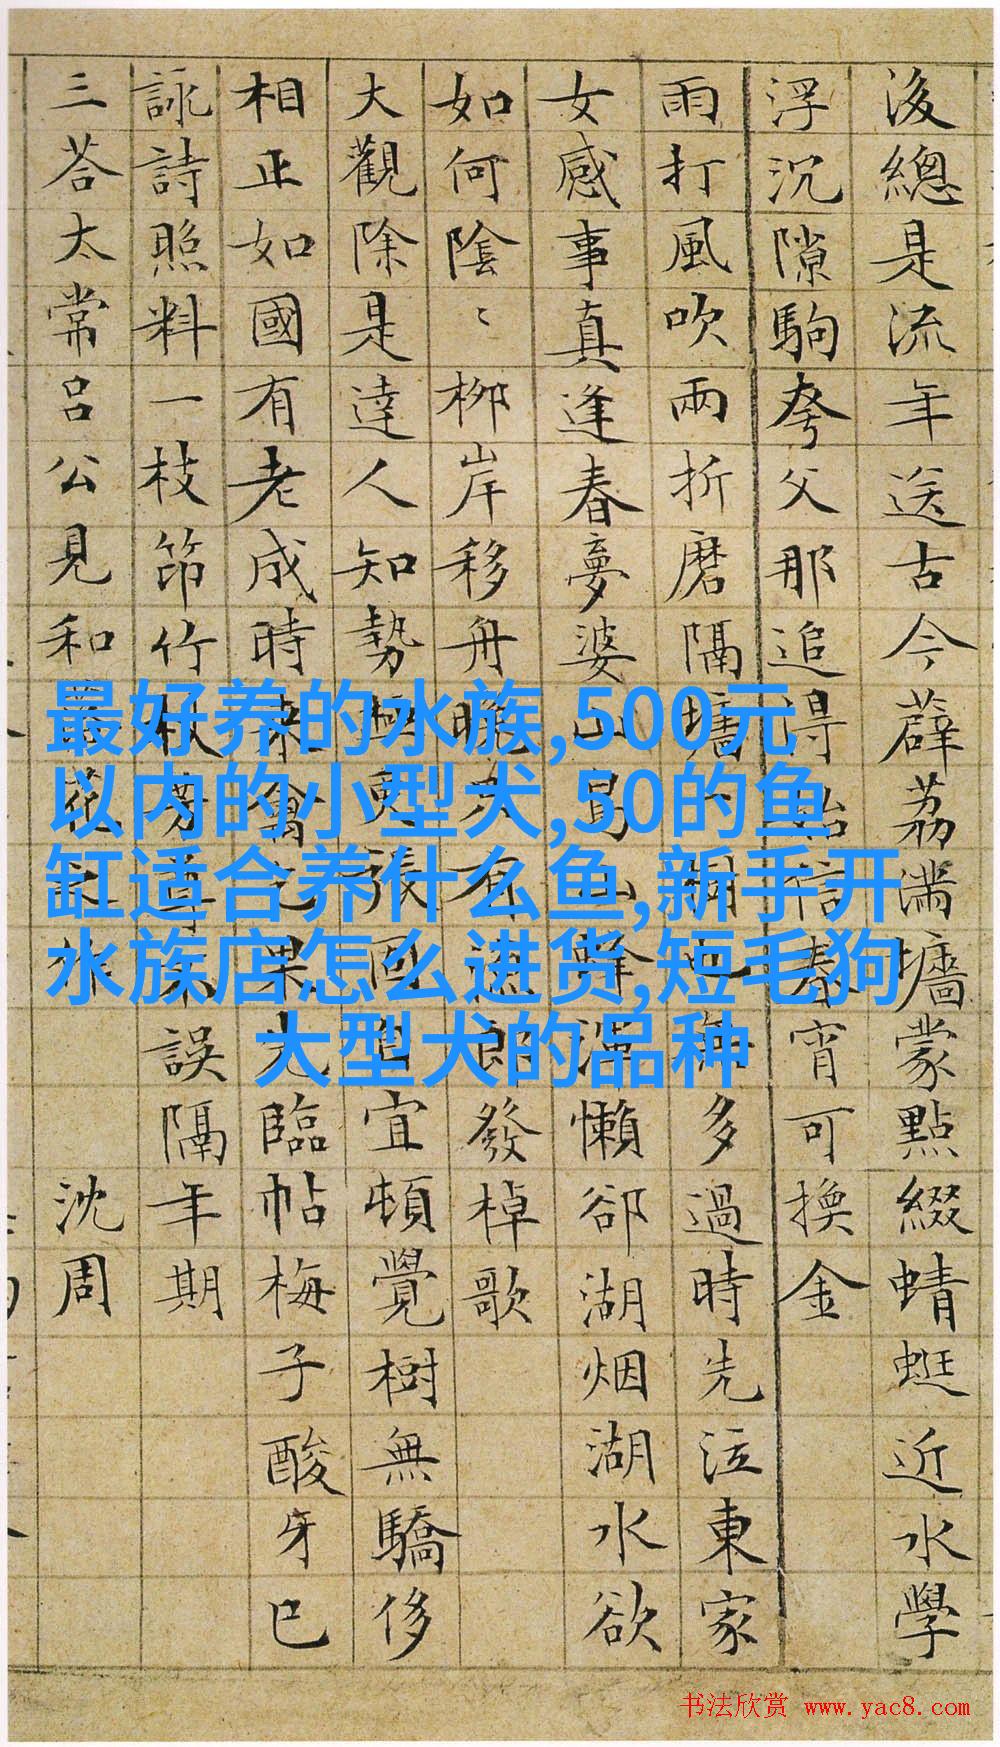 後總是流年送古今薜荔滿墻蒙點綴蜻蜓近水學
浮沉隙駒夸父那追得始信春宵可換金
雨打風吹兩折磨隔墻多過時先泣東家
女感事真逢春夢婆山懶郤湖烟湖水欲
如何陰〻柳岸移舟晚郎發棹歌
大觀除是達人知勢極張宜頓覺樹無驕侈
相正如國有老成時禽臨帖梅子酸牙已
詠詩照料一枝笻竹誤隔年期
三荅太常呂公見和落花之作 沈周
最好养的水族,500元
以内的小型犬,50的鱼
缸适合养什么鱼,新手开
水族店怎么进货,短毛狗
大型犬的品种
书法欣赏 www.yac8.com